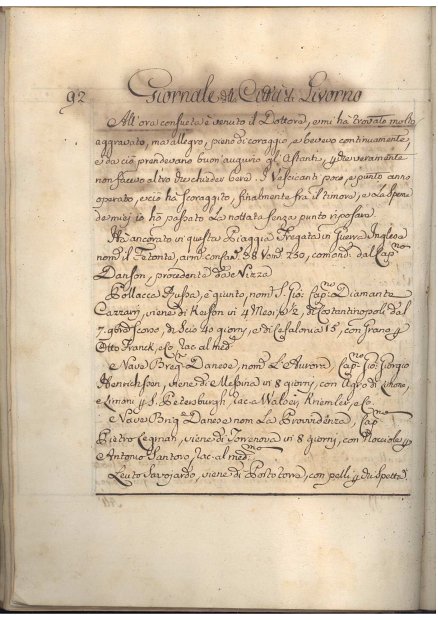 92 Giornale di Città di Livorno
All'ora consueta è venuto il Dottore, e mi ha trovato molto
aggravato, ma allegro, pieno di coraggio, e bevevo continuamente,
e da ciò prendevano buon'augurio gl'Astanti, veramente
non facevo altro che chieder bere. I Vescicanti poco, e punto anno
operato, e ciò ha scoraggito, finalmente fra il timore, e la speme
de miei io ho passato la nottata senza punto riposare.
Ha ancorato in questa Piaggia Fregata in Guerra Inglese
nom. il Tetonte, arm. 38 250, comand. dal Cap.no
Danson, procedente da Nizza
Pollacca Russa, è giunto, nom. S. Gio: Cap.no Diamante
Cazzary, viene di Keison in 4 Mesi, e 2, di Costantinopoli dal
7. scorso, di Scio 40 giorni, e di Cefalonia 15, con Grano p
Otto Franck, e Co. rac. al med.
e Nave Brig.n Danese, nom. L'Aurora, Cap.no Gio: Giorgio
Henrichson, viene di Messina in 8 giorny, con Agro di Limone,
e Limoni p S. Petersburgh, rac. a Walser, Kriemler, e Co.
e Nave Brig. Danese nom. La Providenza, Cap.no
Pietro Legnan, viene di Terrenova in 8 giorny, con Nocciole p
Antonio Santoro, rac. al med.mo
Leuto Savojardo, viene di Porto torre, con pelli p